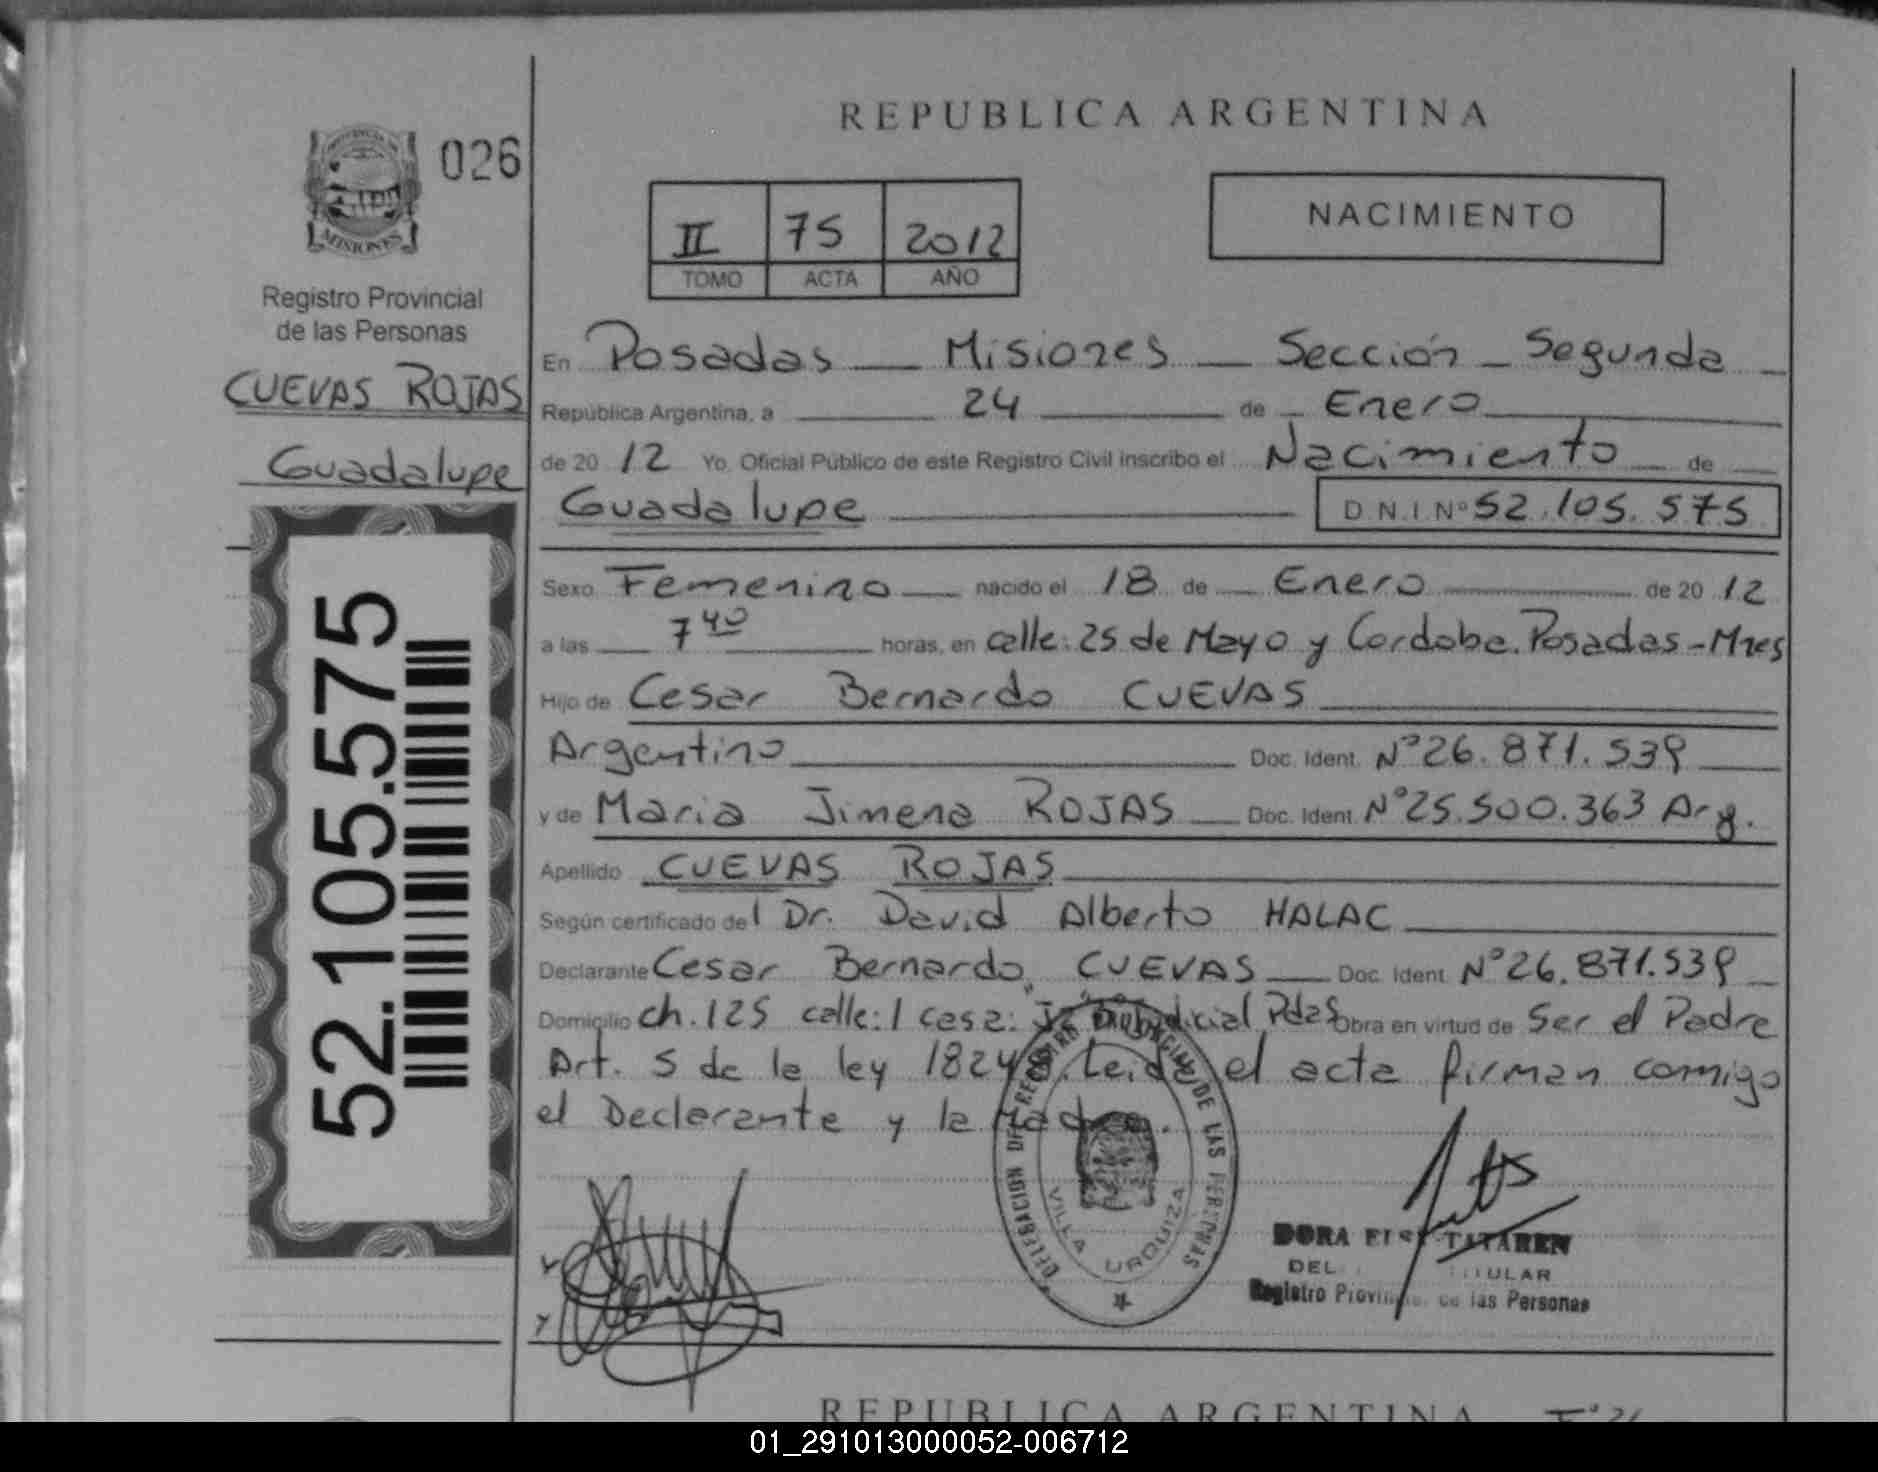 026
MISIONES
Registro Provincial
de las Personas
CUEVAS ROJAS
Guadalupe
52.105.575
REPUBLICA ARGENTINA
II 75 2012
TOMO ACTA AÑO
NACIMIENTO
En Posadas Misiones Sección Segunda
República Argentina, a 24 de Enero
de 20 12 Yo, Oficial Público de este Registro Civil inscribo el Nacimiento de
Guadalupe D.N.I. Nº 52.105.575
Sexo Femenino nacido el 18 de Enero de 20 12
a las 7 40 horas, en calle: 25 de Mayo y Cordoba. Posadas - Mnes
Hijo de Cesar Bernardo CUEVAS
Argentino Doc. Ident. Nº 26.871.539
y de Maria Jimena ROJAS Doc. Ident. Nº 25.500.363 Arg.
Apellido CUEVAS ROJAS
Según certificado del Dr. David Alberto HALAC
Declarante Cesar Bernardo CUEVAS Doc. Ident. Nº 26.871.539
Domicilio ch. 125 calle: 1 casa: Judicial Pdas Obra en virtud de Ser el Padre
Art. 5 de la ley 18248. Leida el acta firman comigo
el Declarante y la Madre.
DELEGACION DEL REGISTRO PROVINCIAL DE LAS PERSONAS
VILLA URQUIZA
DORA TATAREN
Registro Provincial de las Personas
REPUBLICA ARGENTINA
01_291013000052-006712